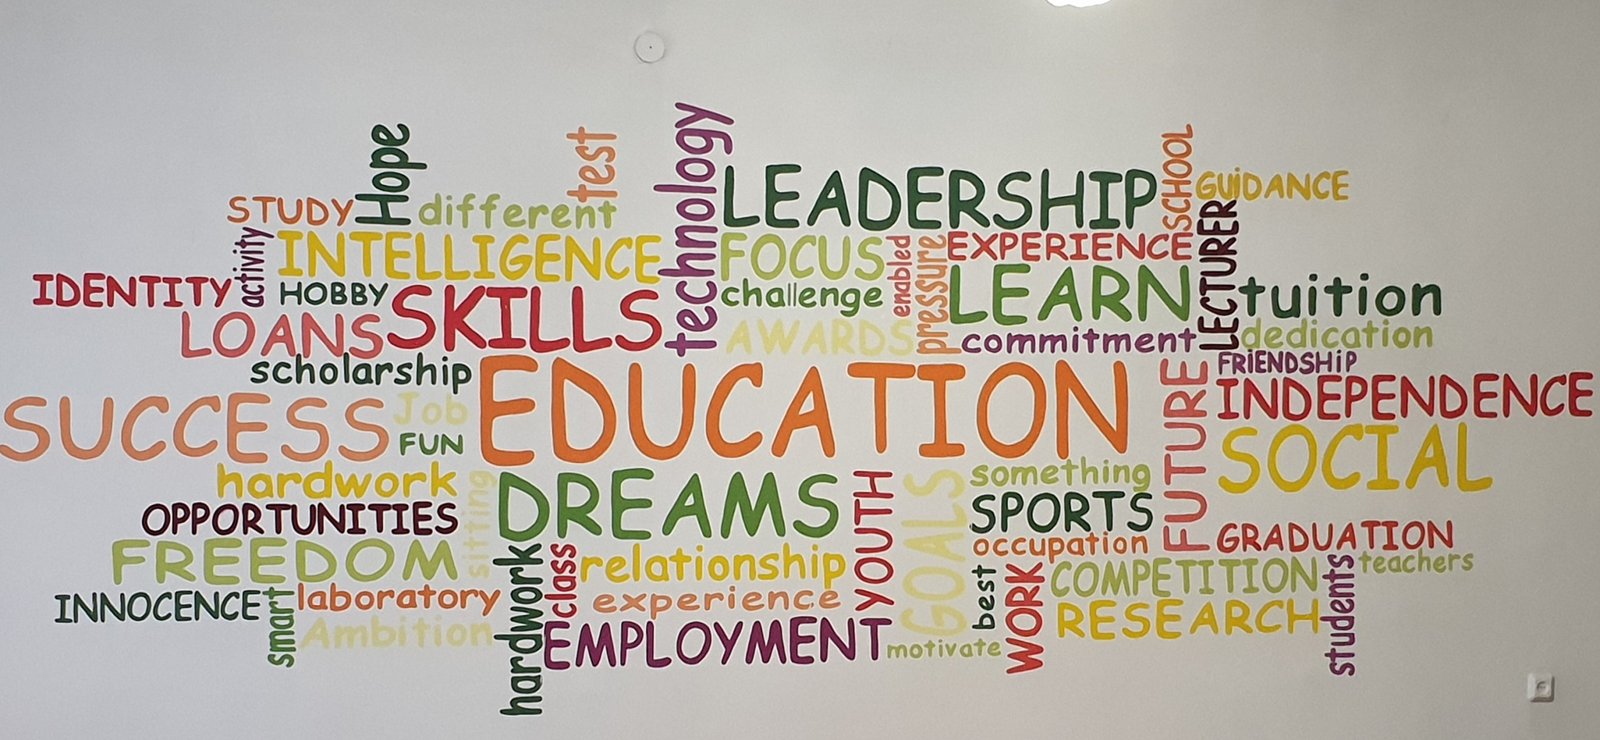 Hope
test
technology
LEADERSHIP
SCHOOL
GUiDANCE
STUDY
different
LECTURER
activity
INTELLIGENCE
FOCUS
enabled
pressure
EXPERIENCE
IDENTITY
HOBBY
SKILLS
challenge
LEARN
tuition
LOANS
AWARDS
commitment
dedication
scholarship
EDUCATION
FUTURE
FRiENDSHiP
INDEPENDENCE
SUCCESS
Job
FUN
SOCIAL
hardwork
sitting
DREAMS
YOUTH
GOALS
something
OPPORTUNITIES
SPORTS
FREEDOM
hardwork
class
relationship
occupation
GRADUATION
INNOCENCE
smart
laboratory
experience
best
WORK
COMPETITION
students
teachers
Ambition
EMPLOYMENT
motivate
RESEARCH